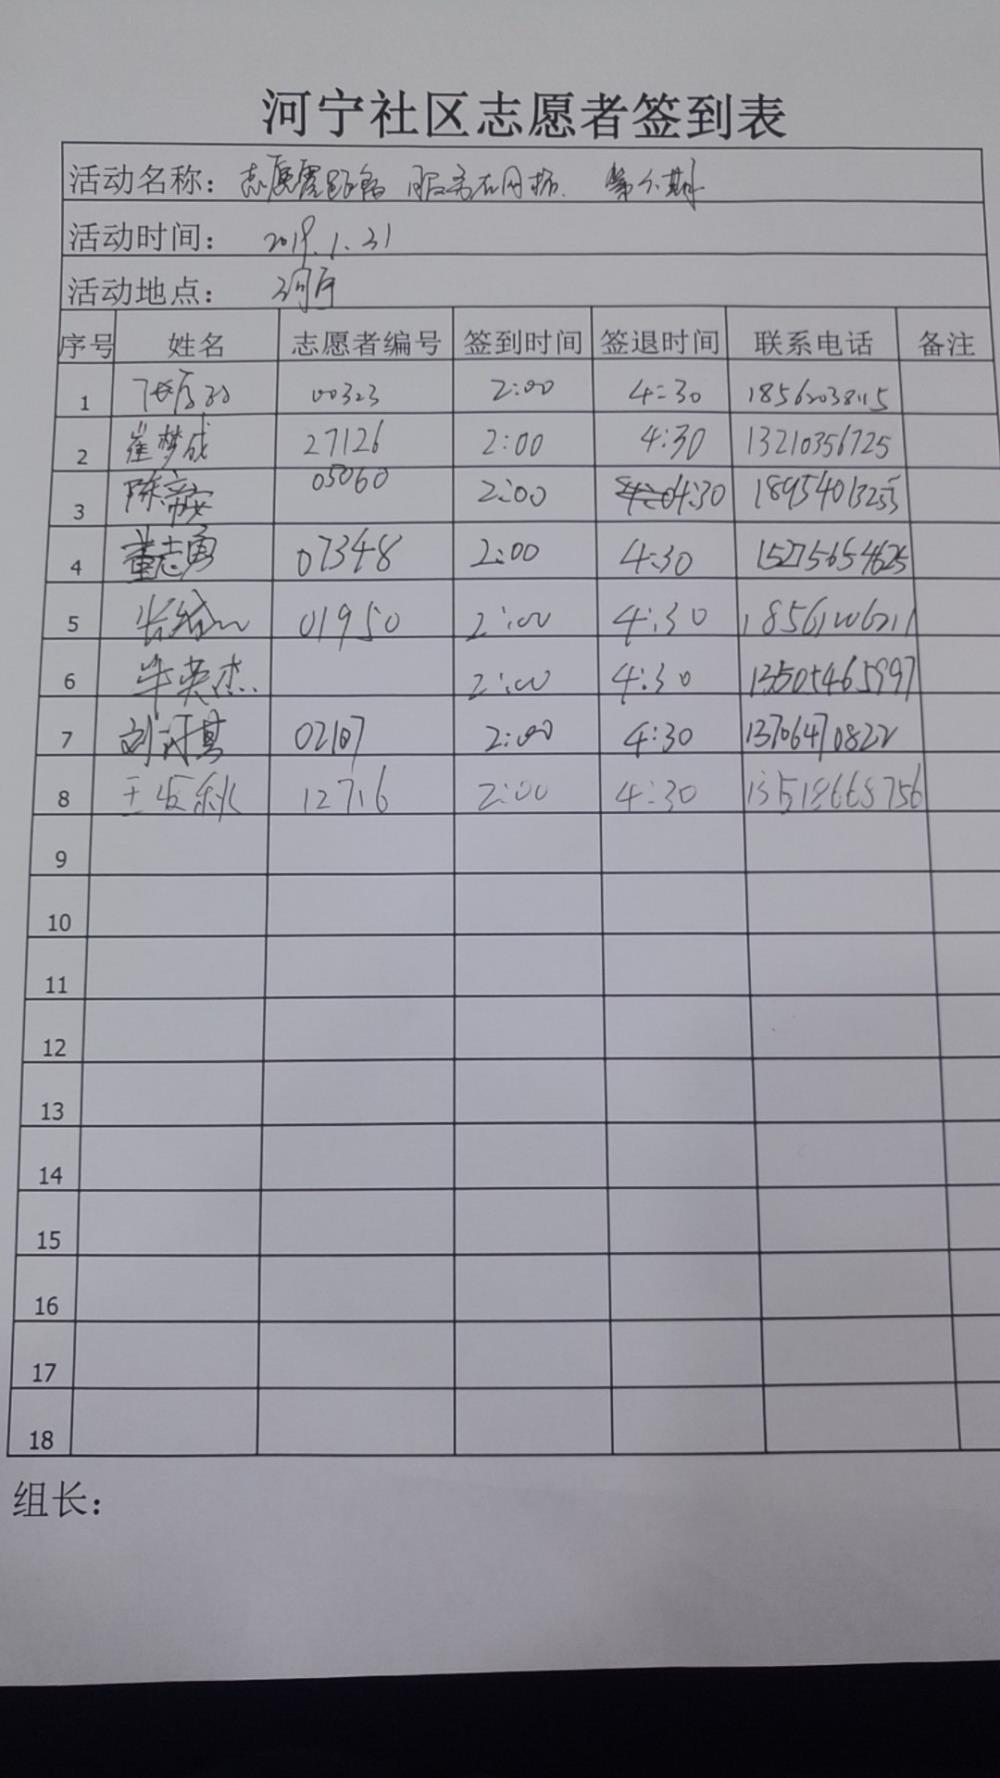 河宁社区志愿者签到表
活动名称：志愿 服务在网格 第 期
活动时间：2019.1.31
活动地点：
序号 姓名 志愿者编号 签到时间 签退时间 联系电话 备注
1 00323 2:00 4:30
2 崔梦成 27126 2:00 4:30 13210356725
3 陈 05060 2:00 4:30
4 董志勇 07348 2:00 4:30 15275654625
5 01950 2:00 4:30
6 牟英杰 2:00 4:30 13505465997
7 刘 其 2:00 4:30 13706470822
8 王 秋 12716 2:00 4:30
9
10
11
12
13
14
15
16
17
18
组长：